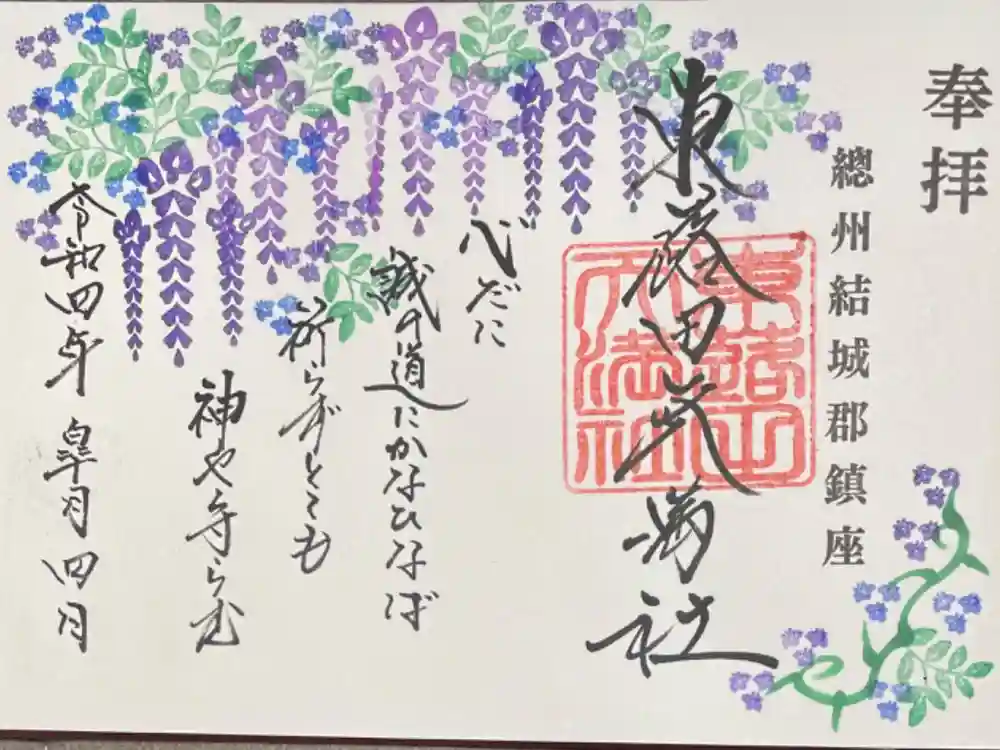 奉拝
總州結城郡鎮座
東蕗田天満社
東蕗田
天満社
心だに
誠の道にかなひなば
祈らずとても
神や守らむ
令和四年 皐月四日